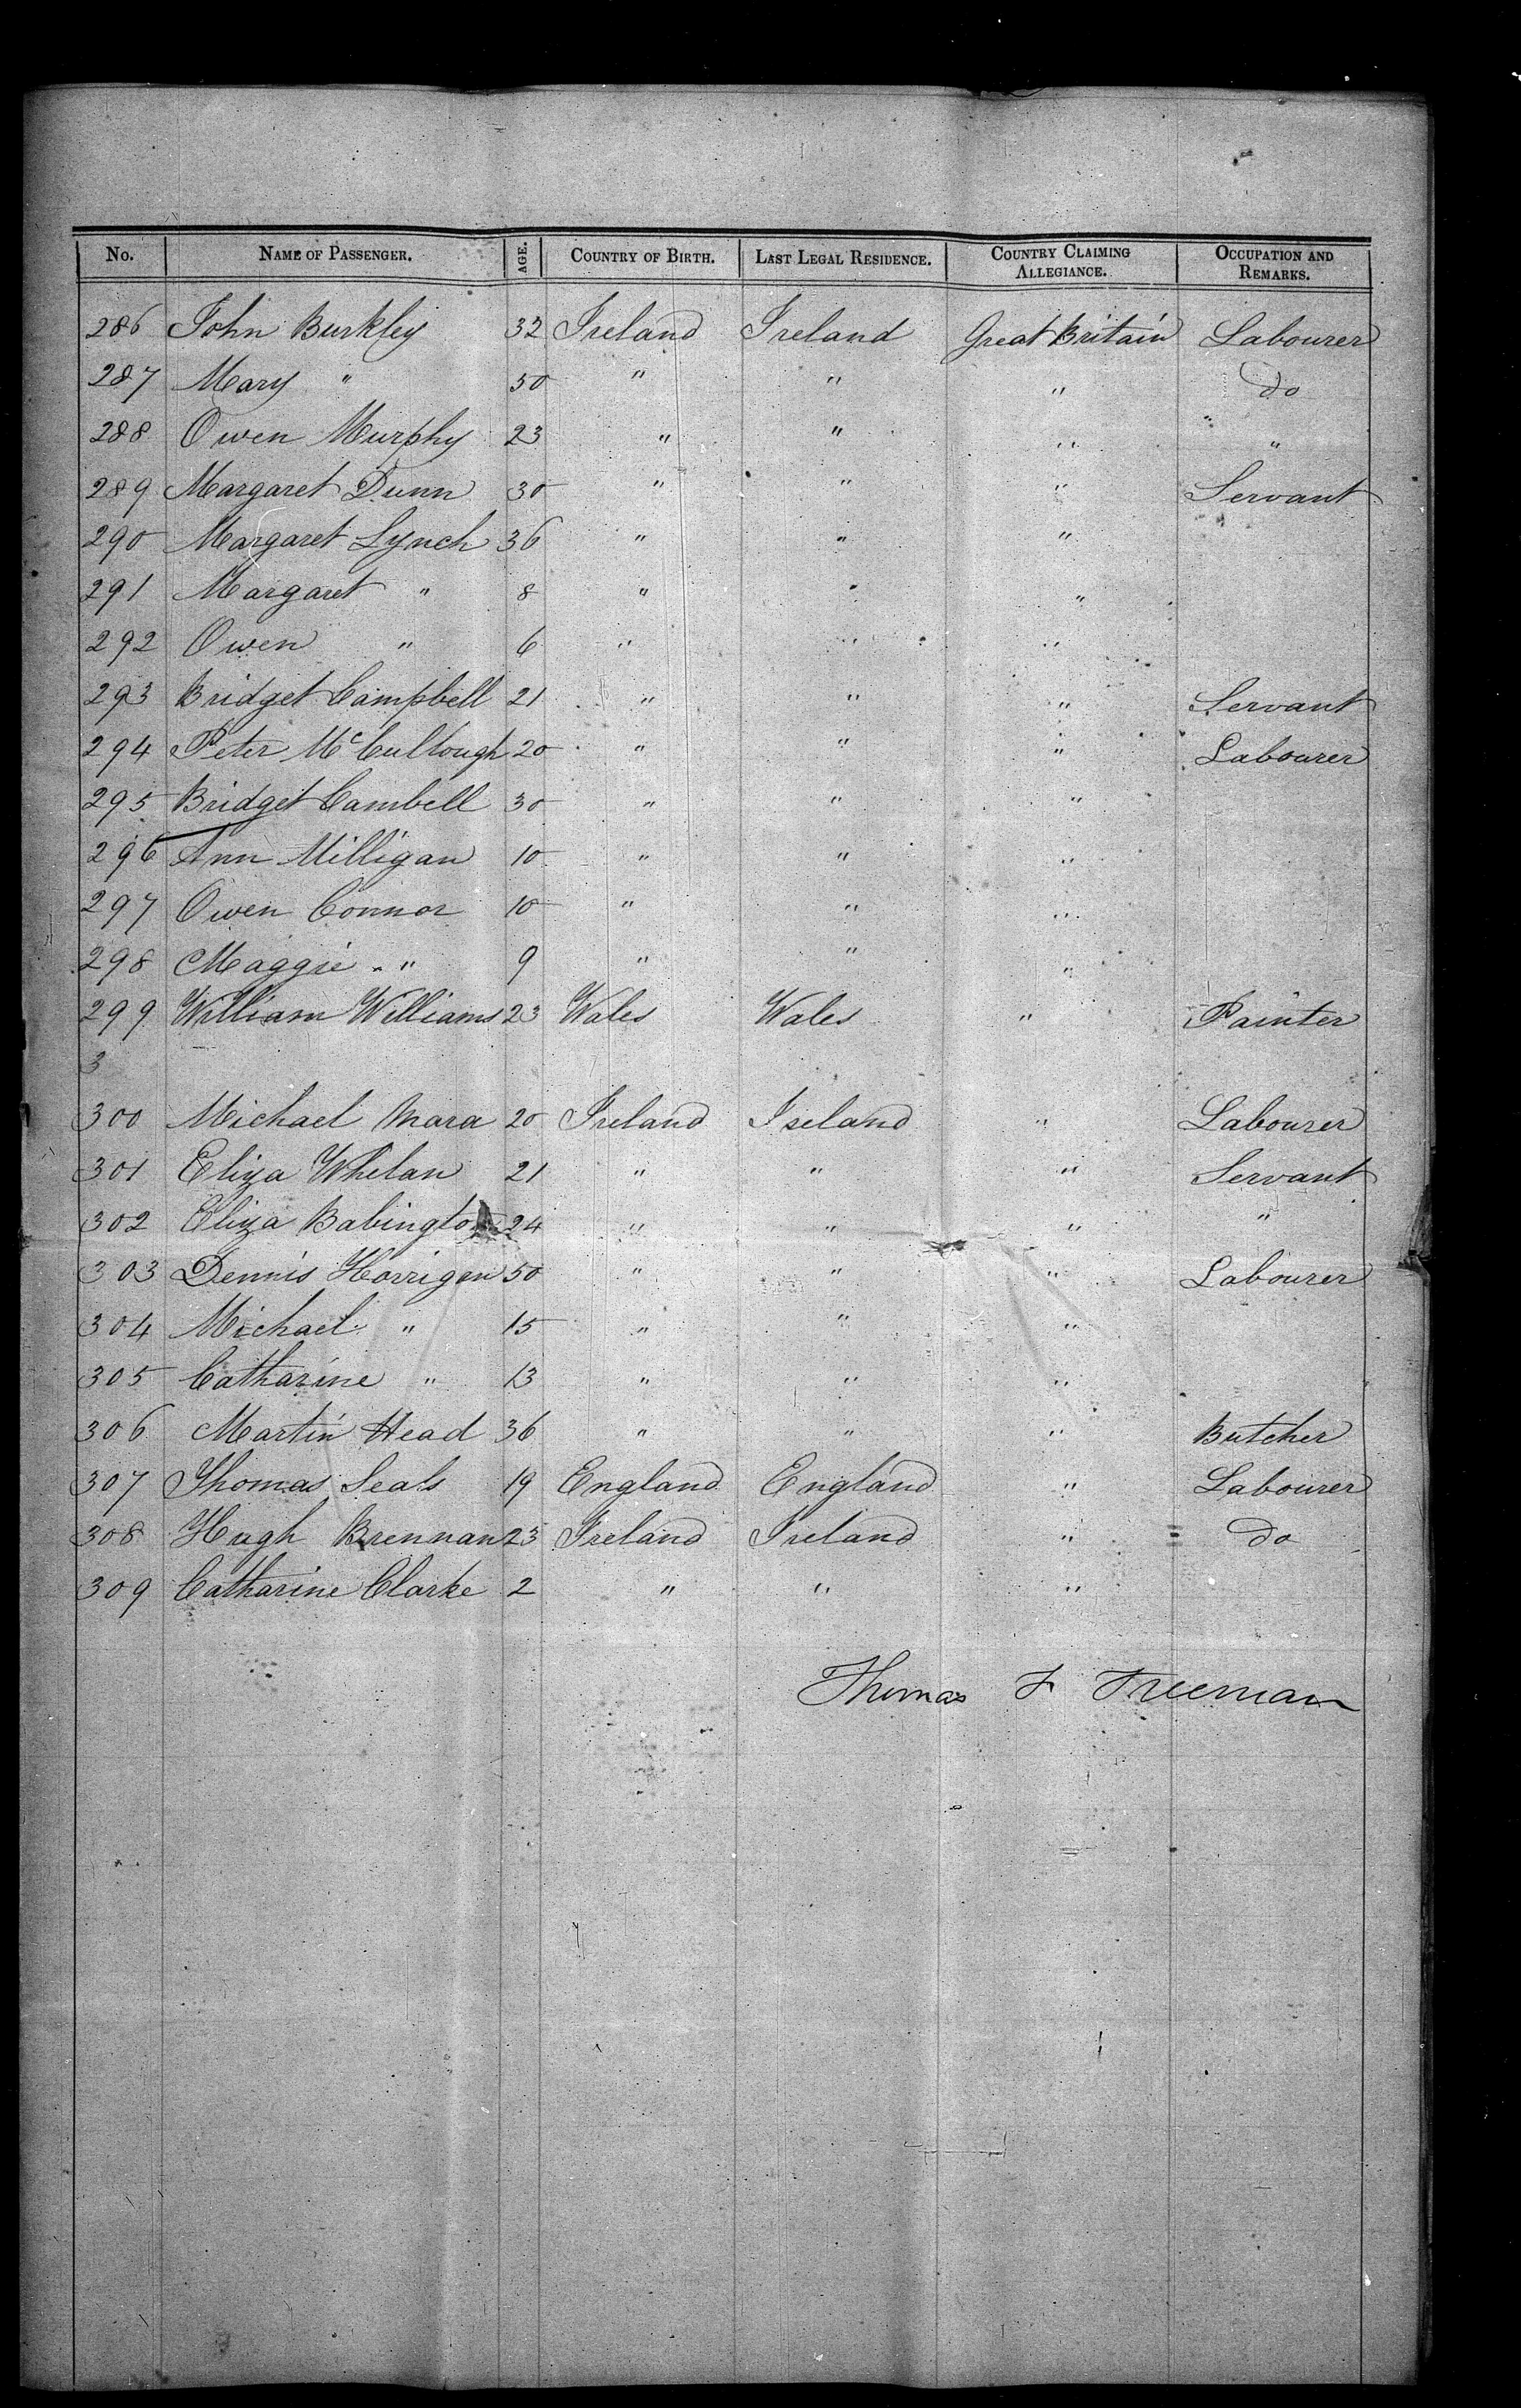 No. NAME OF PASSENGER. AGE. COUNTRY OF BIRTH. LAST LEGAL RESIDENCE. COUNTRY CLAIMING ALLEGIANCE. OCCUPATION AND REMARKS.
286 John Burkley 32 Ireland Ireland Great Britain Labourer
287 Mary " 50 " " " do
288 Owen Murphy 23 " " " "
289 Margaret Dunn 30 " " " Servant
290 Margaret Lynch 36 " " "
291 Margaret " 8 " " "
292 Owen " 6 " " "
293 Bridget Campbell 21 " " " Servant
294 Peter McCullough 20 " " " Labourer
295 Bridget Cambell 30 " " "
296 Ann Milligan 10 " " "
297 Owen Connor 10 " " "
298 Maggie " 9 " " "
299 William Williams 23 Wales Wales " Painter
3
300 Michael Mara 20 Ireland Ireland " Labourer
301 Eliza Whelan 21 " " " Servant
302 Eliza Babington 24 " " " "
303 Dennis Horrigan 50 " " " Labourer
304 Michael " 15 " " "
305 Catharine " 13 " " "
306 Martin Head 36 " " " Butcher
307 Thomas Seals 19 England England " Labourer
308 Hugh Brennan 23 Ireland Ireland " do
309 Catharine Clarke 2 " " "
Thomas F Freeman